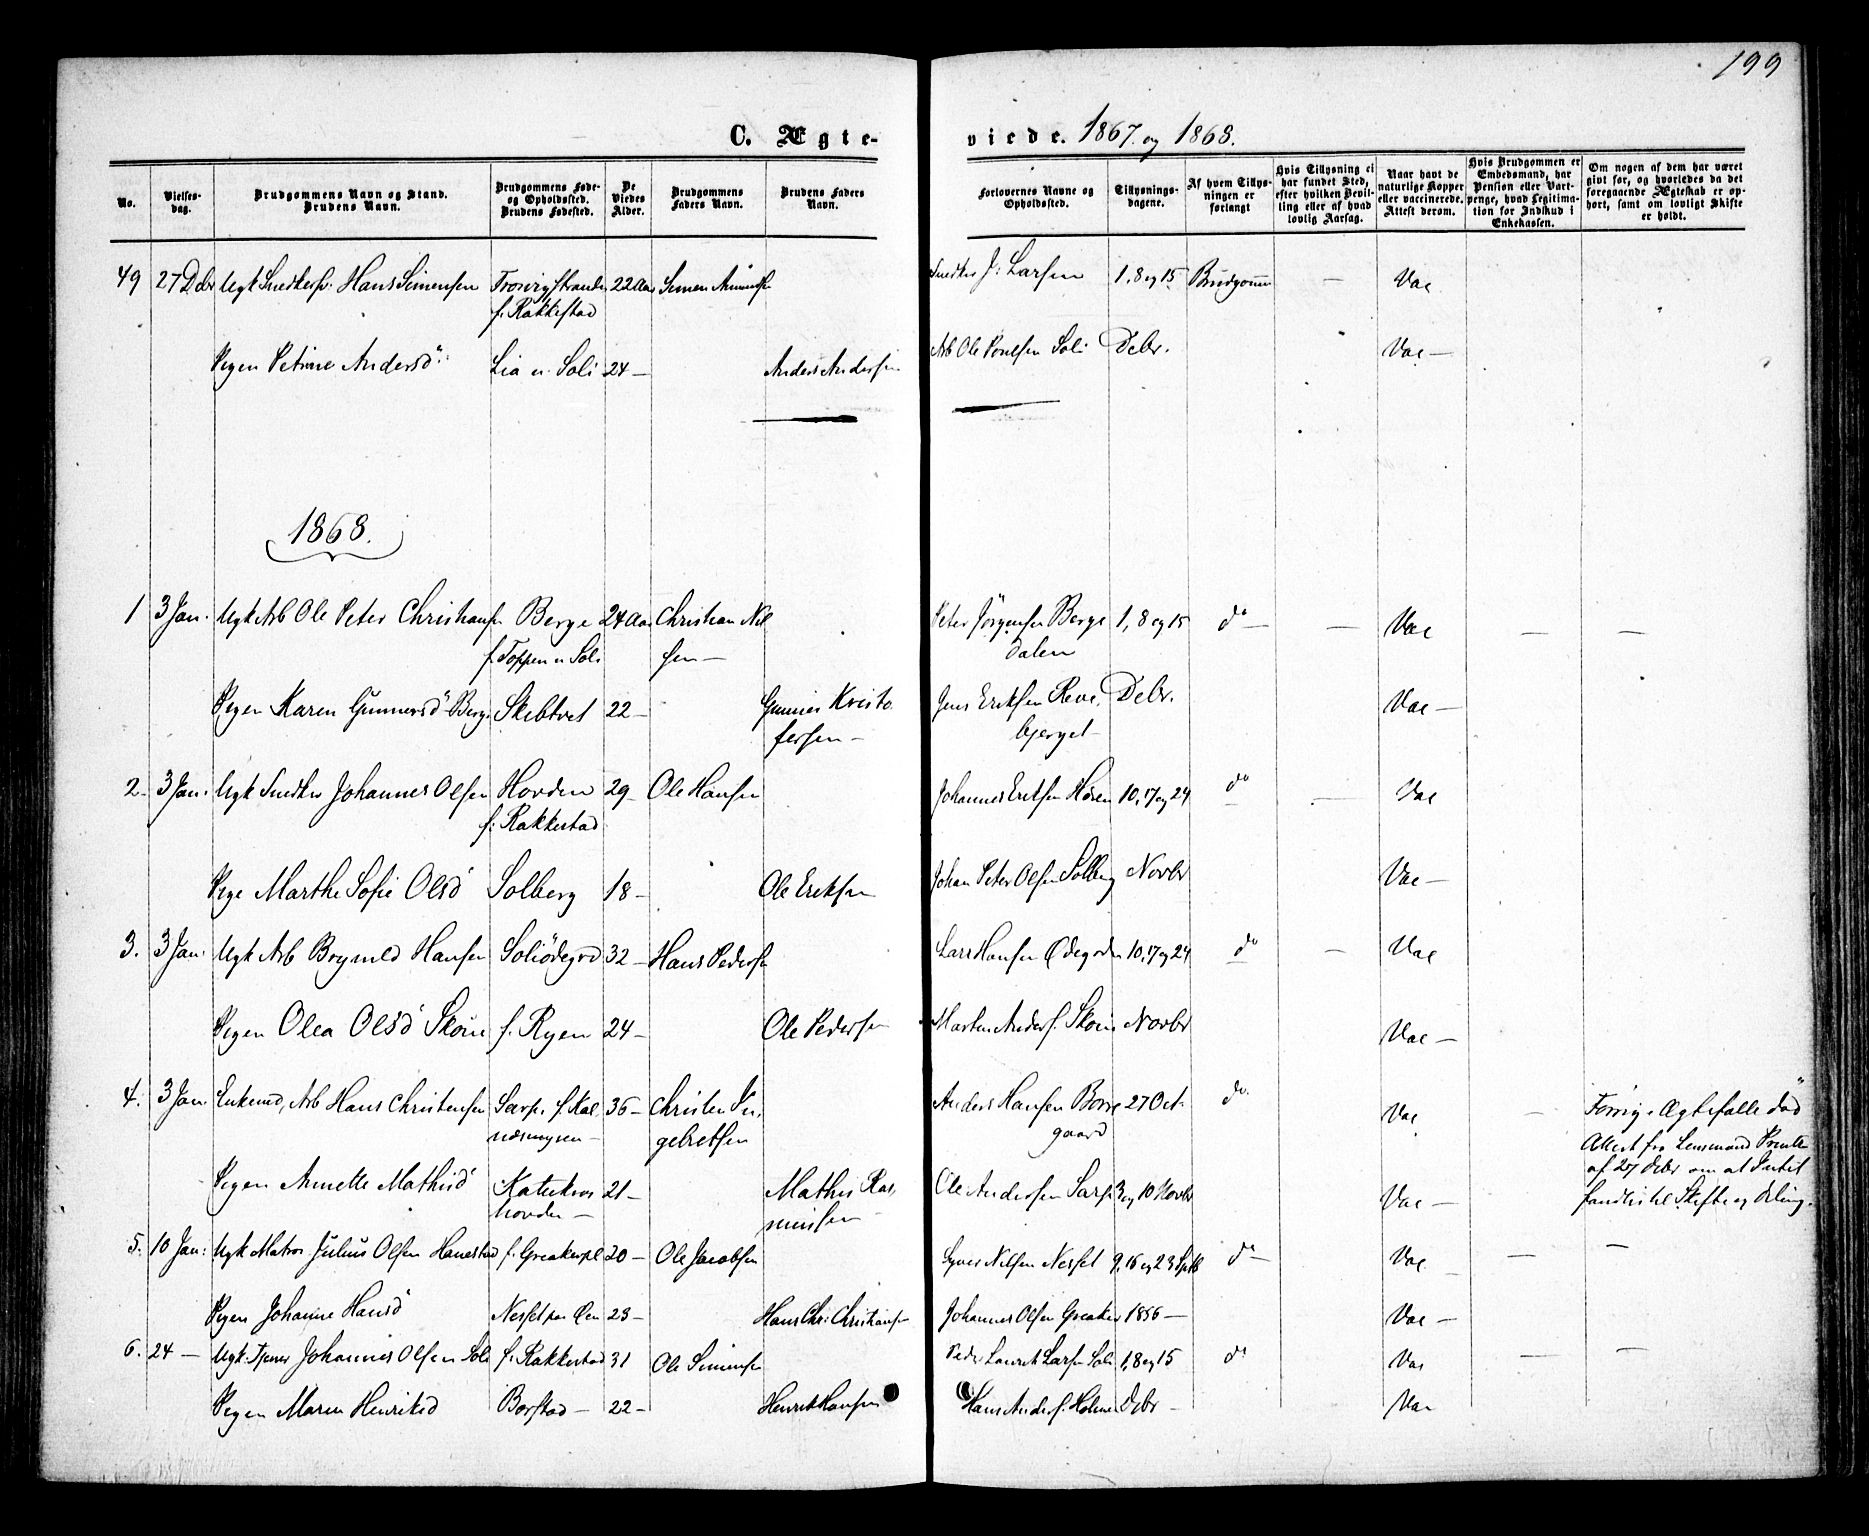 199
C. Ægte-
viede. 1867. og 1868.
No.
Vielses-
dag.
Brudgommens Navn og Stand.
Brudens Navn.
Brudgommens Føde-
og Opholdssted.
Brudens Fødested.
De
Viedes
Alder.
Brudgommens
Faders Navn.
Brudens Faders
Navn.
Forlovernes Navne og
Opholdssted.
Tillysnings-
dagene.
Af hvem Tillys-
ningen er
forlangt
Hvis Tillysning ei
har fundet Sted,
efter hvilken Bevil-
ling eller af hvad
lovlig Aarsag.
Naar havt de
naturlige Kopper
eller vaccinerede.
Attest derom.
Hvis Brudgommen er
Embedsmand, har
Pension eller Vart-
penge, hvad Legitima-
tion for Indskud i
Enkekassen.
Om nogen af dem har været
givt før, og hvorledes da det
foregaaende Ægteskab er op-
hort, samt om lovligt Skifte
er holdt.
49 27 Debr Ugk Snedkersv. Hans Simensen 22 Aar Simen Snedker J. Larsen 1, 8 og 15 Brudgomm — Vac
f. Rakkestad
Pigen Petrine Andersd. Lia u. Soli 24 — Anders Andersen Arb Ole Poulsen Soli Debr. Vac —
1868.
1 3 Jan. Ugk Arb Ole Peter Christiansen Berge 24 Aar Christian Niel Peter Jørgensen Berge 1, 8 og 15 do — — Vac — —
f. Toppen u Soli sen — dalen
Pigen Karen Gunnersd Berg Skibtvet 22 — Gunner Kristo Jens Eriksen Reve Debr. Vac —
fersen — bjerget
2. 3 Jan. Ugk Snedker Johannes Olsen Hovden 29 — Ole Hansen Johannes Eriksen 10, 17 og 24 do — Vac
f. Rakkestad
Pige Marthe Sofie Olsd Solberg 18 — Ole Eriksen Johan Peter Olsen Solberg Novbr Vac —
3. 3 Jan. Ugk Arb Brynild Hansen Soliödegrd 32 — Hans Pedersen Lars Hansen Ødegorden 10, 17 og 24 do — Vac
Pigen Olea Olsd Skøie f. Ryen 24 — Ole Pedersen Morten Anders. Skøie Novbr Vac —
4. 3 Jan. Enkemd, Arb Hans Christensen Sarp. f. Kal 36 — Christen In Anders Hansen Borre 27 Oct. do. Vac — Forrig Ægtefælle död
næsmyren — gebretsen gaard Attest fra Lensmand
Pigen Annette Mathisd Kattekros 21 — Mathis Ras Ole Andersen Sarp 3 og 10 Novbr Vac — af 27 Debr om at Intet
hovden — mussen — fandtes til Skifte og Deling.
5. 10 Jan: Ugk Matros Julius Olsen Hanestad f. Greakerpl 20 — Ole Jacobsen Syver Nilsen Nesset 9, 16 og 23 Sptb do — Vac — — —
Pigen Johanne Hansd Nesset paa Øen 23 — Hans Chr: Christiansen Johannes Olsen Greaker 1866 — Vac —
6. 24 — Ugk: Tjener Johannes Olsen Soli f. Rakkestad 31 Ole Simensen Peder Laurits Larsen Soli 1, 8 og 15 do Vac — —
Pigen Maren Henriksd Borstad — 22 — Henrik Hansen Hans Anders. Holmen Debr — Vac